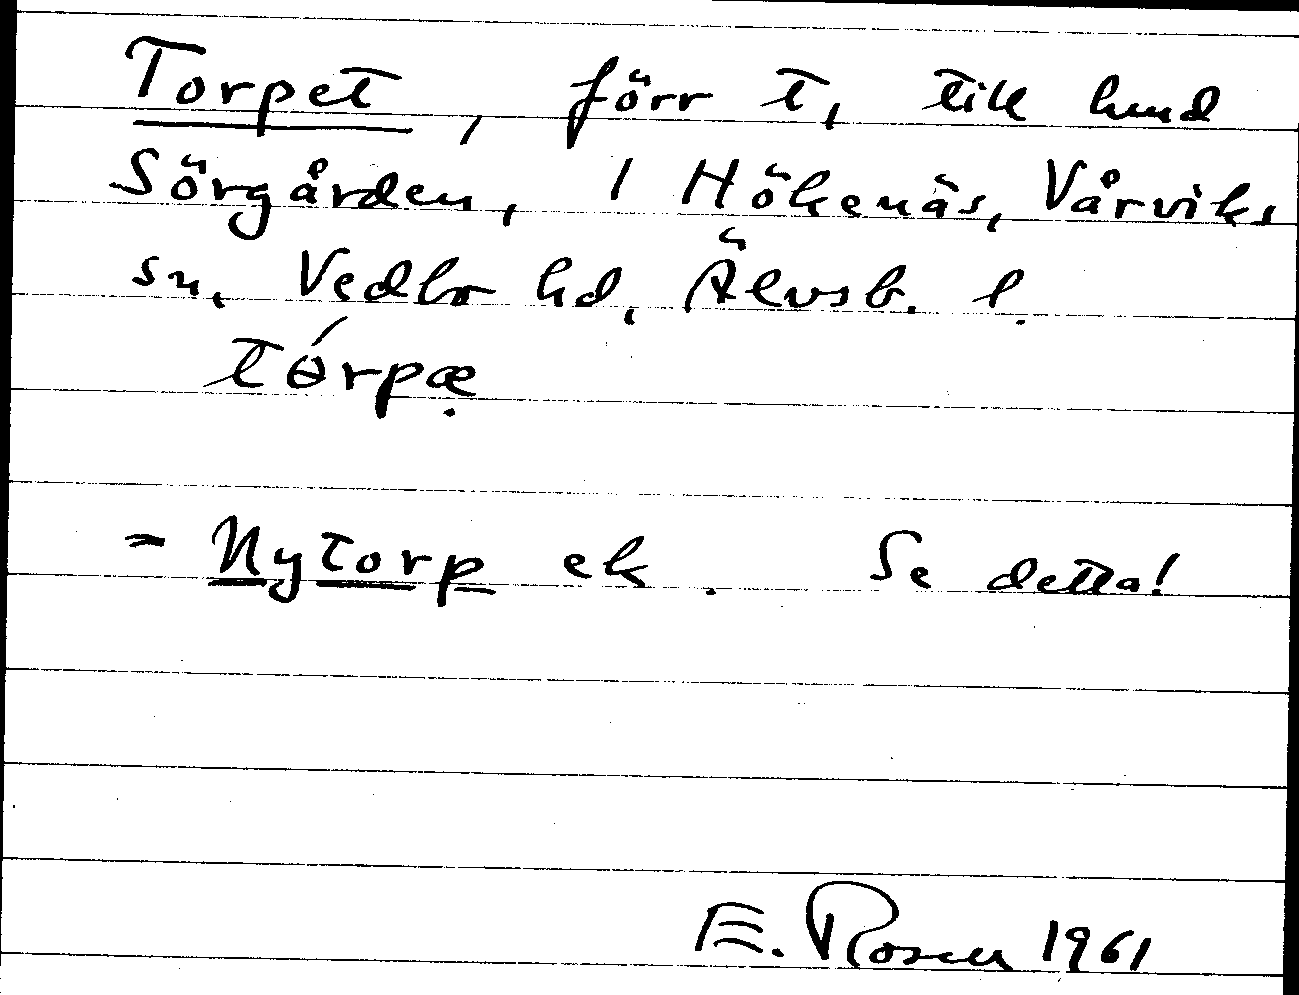 Torpet, förr t, till hmd
Sörgården, 1 Hökenäs, Vårviks
sn, Vedbo hd, Älvsb. l.
tórpæ̣
= Nytorp ek. Se detta!
E. Rosen 1961